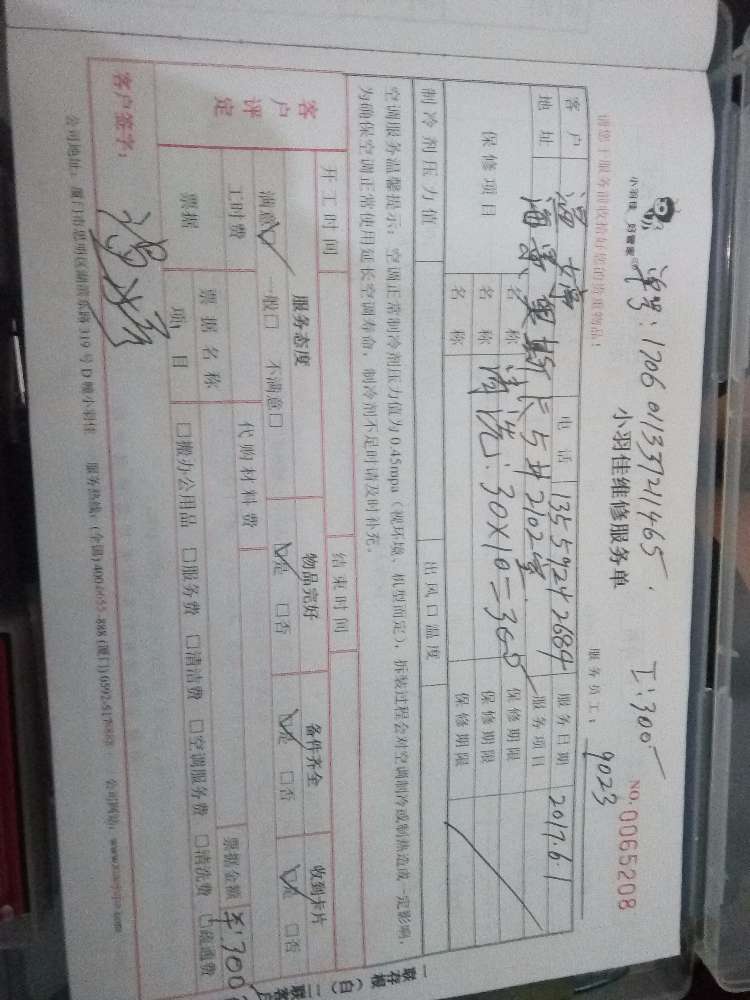 单号: 1206 01133721465. 工: 300
小羽佳 好管家
小羽佳维修服务单
NO. 0065208
请您于服务前收拾好您的贵重物品!
服务员工: 9023
客户 电话 13559242684 服务日期 2017.6.1
地址 海景奥斯 2102室 服务项目
保修项目 名称 清洗: 30×10=300 保修期限
名称 保修期限
名称 保修期限
制冷剂压力值 出风口温度
空调服务温馨提示: 空调正常制冷剂压力值为0.45mpa (视环境、机型而定), 拆装过程会对空调制冷或制热造成一定影响,
为确保空调正常使用延长空调寿命, 制冷剂不足时请及时补充。
开工时间 结束时间
客户评定 服务态度 物品完好 备件齐全 收到卡片
满意☑ 一般□ 不满意□ ☑是 □否 ☑是 □否 ☑是 □否
工时费 代购材料费 票据金额 ¥300
票据 票据名称
项目 □搬办公用品 □服务费 □清洁费 □空调服务费 □清洗费 □疏通费
客户签字:
公司地址: 厦门市思明区湖滨东路319号D幢小羽佳 服务热线: (全国) 4006655-888 (厦门) 0592-5178888 公司网址:
一联存根 (白) 二联客